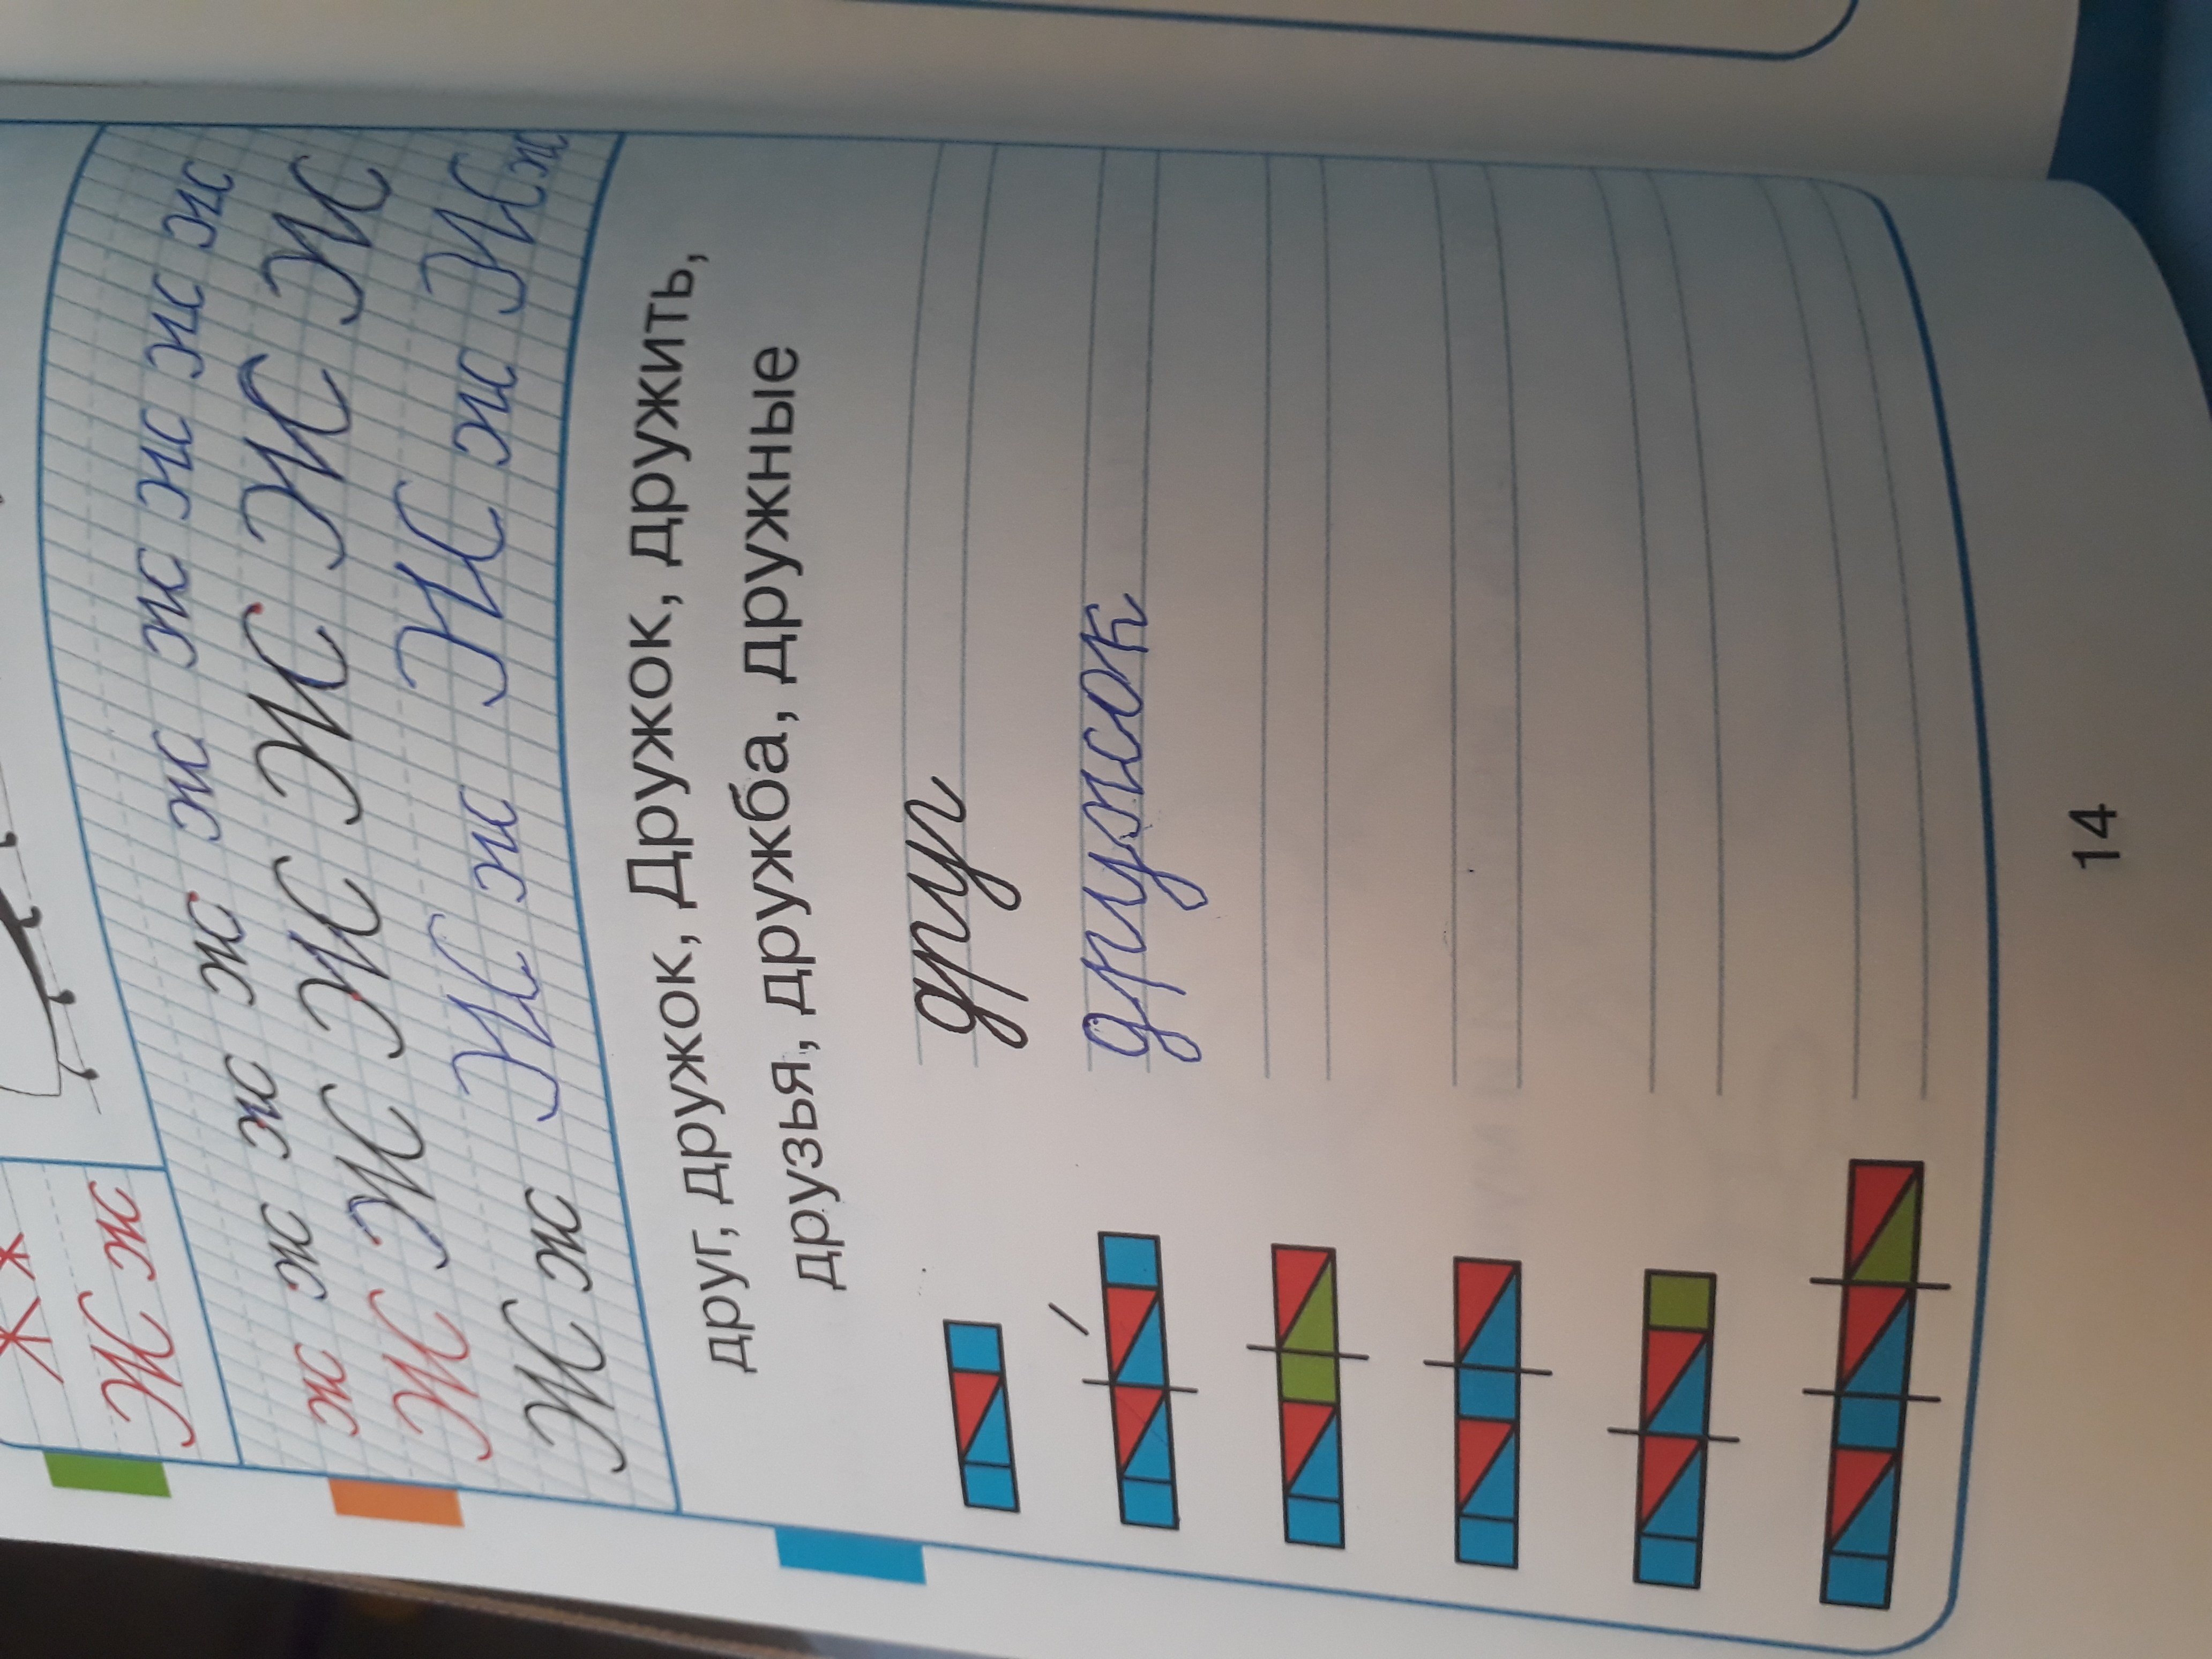 Ж ж
ж ж ж ж ж ж ж ж ж
Ж Ж Ж Ж Ж Ж
Ж ж Ж ж Ж ж Ж ж
друг, дружок, Дружок, дружить,
друзья, дружба, дружные
друг
дружок
14